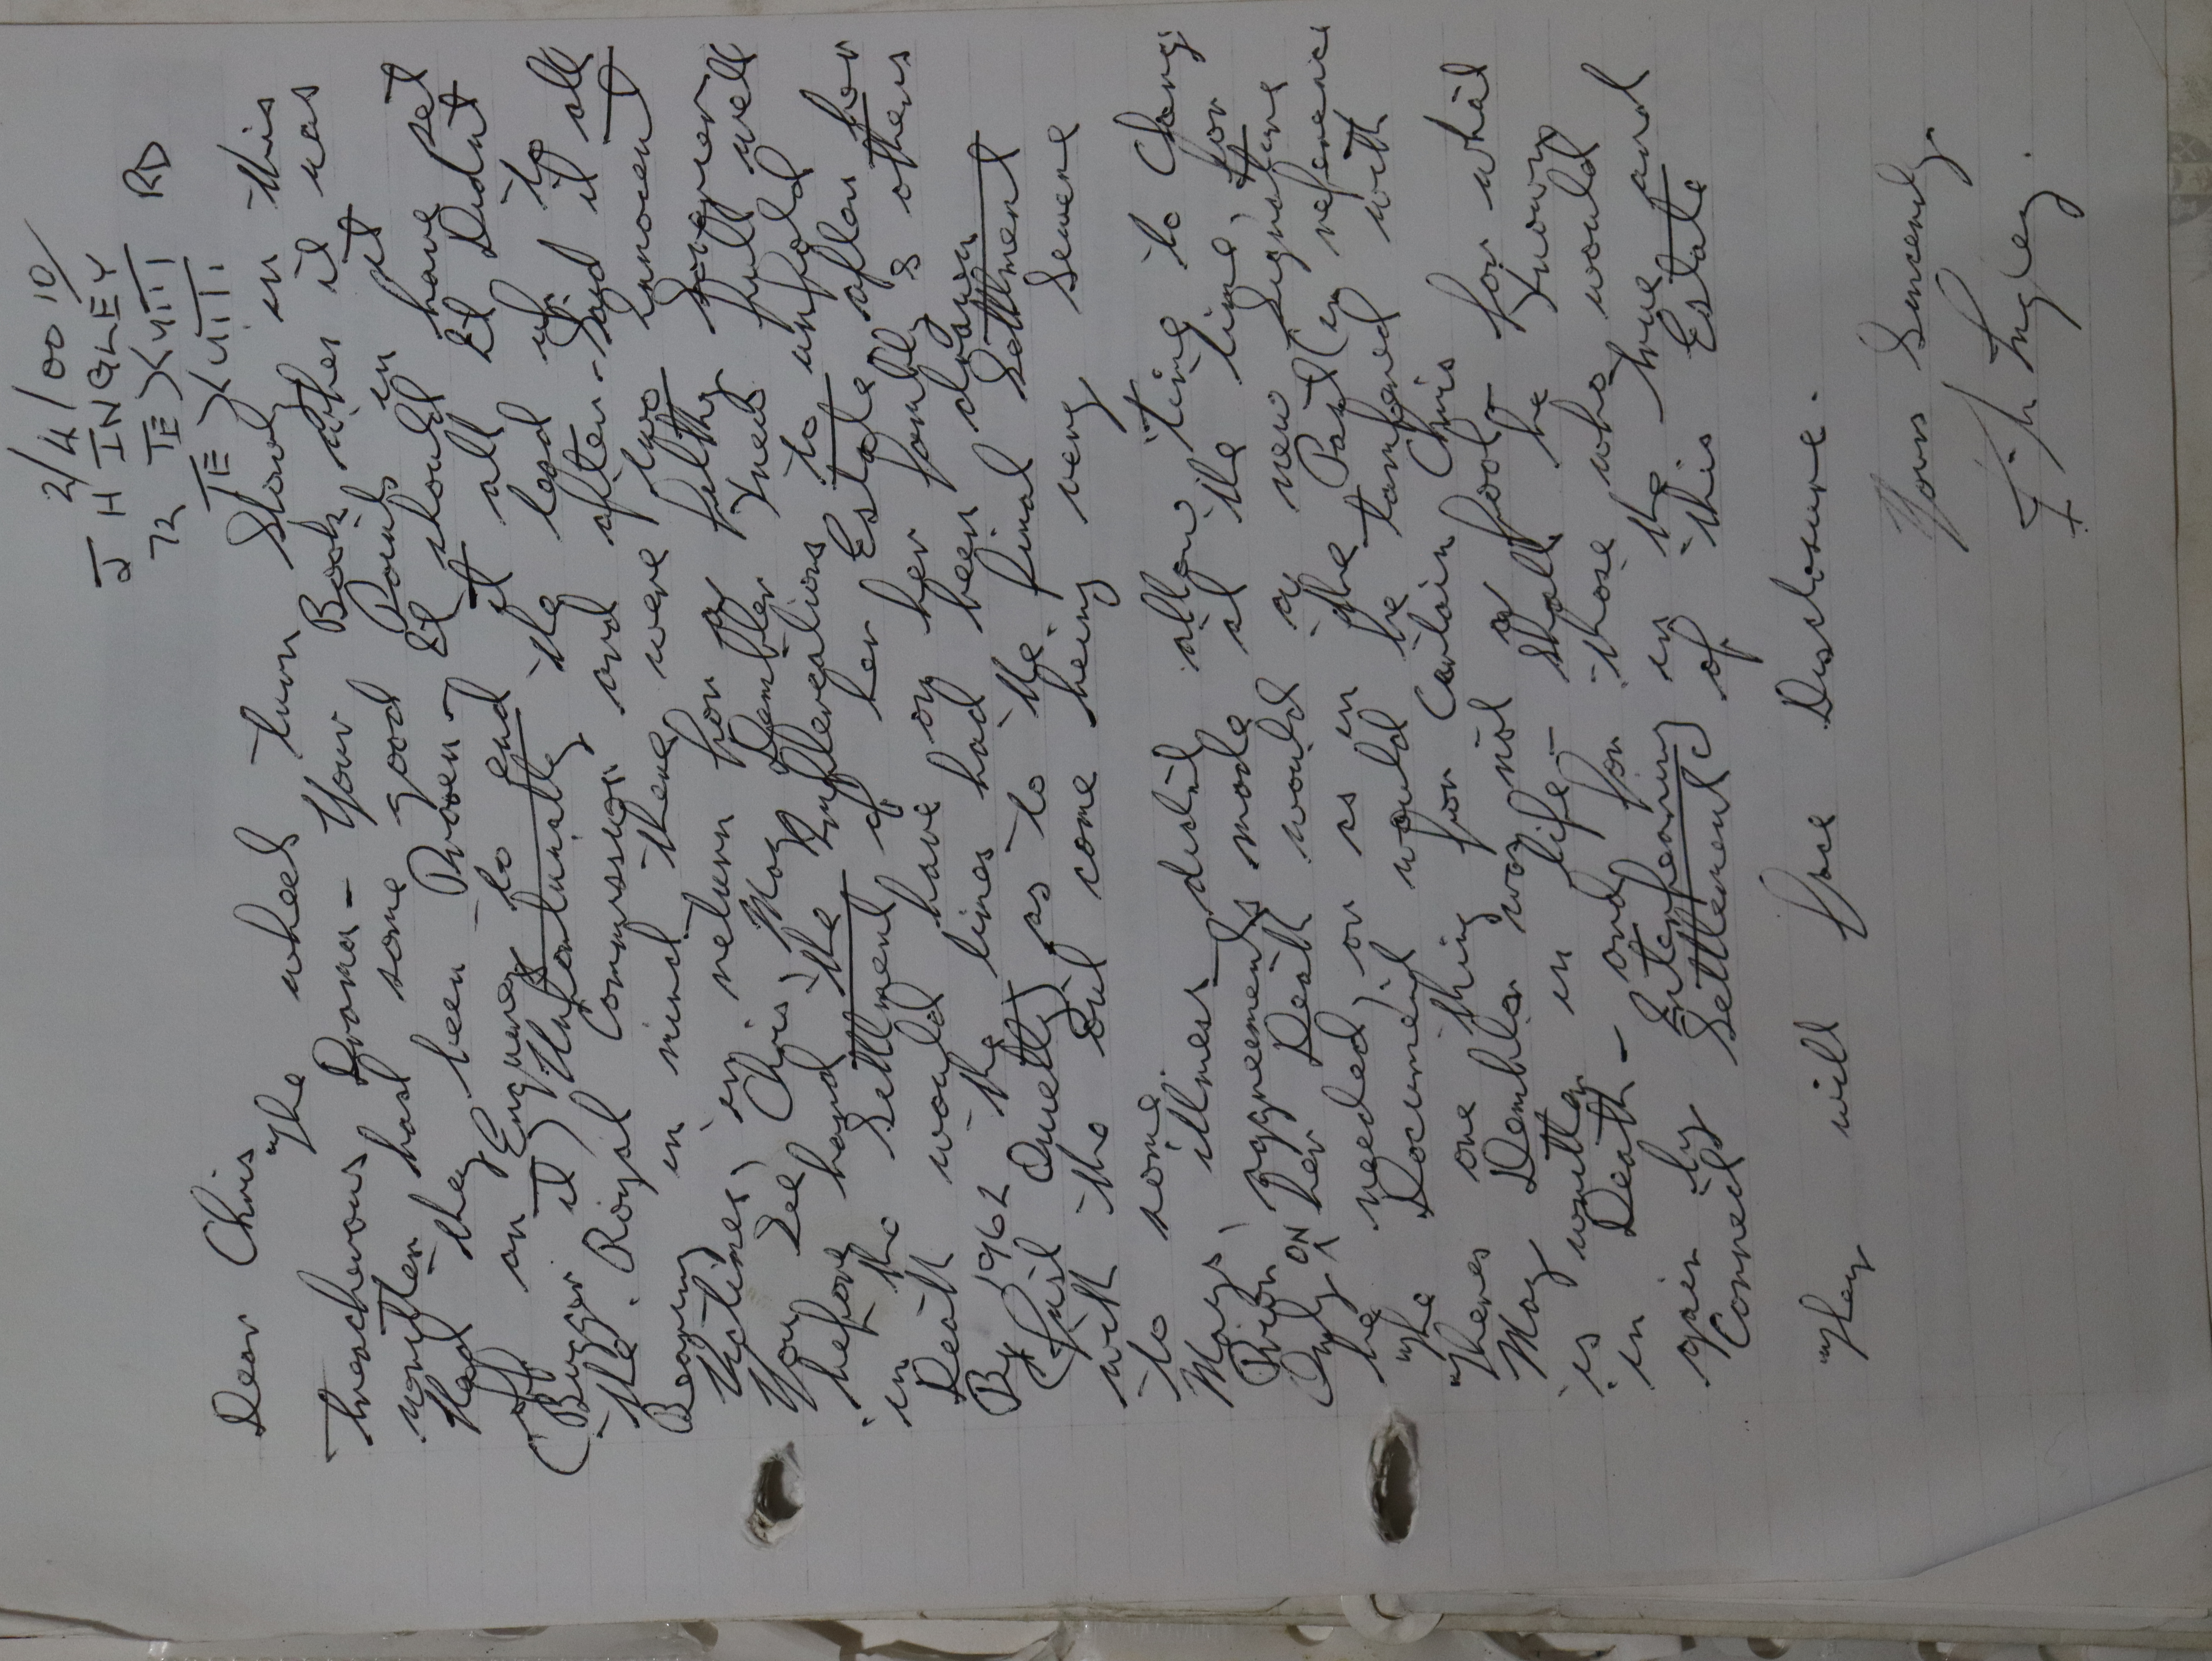 2/4/00 10/
J H INGLEY
72
RD
Dear Chris
The wheels turn slowly in this
treacherous Drama - Your Book when it was
written had some good Points in it
Had they been Proven It should have set
off an Enquirey to end it all It Didnt
(Bugger it) Unfortunatley the lead up to
the Royal Commission and after - Said it all
Bearing in mind there were two innocent
Victims, in return for a filthy Sovereign
You See Chris, May Dembler Knew full well
before hand the Rmffierealions to unfold
in the Settlment of her Estate after her
Death would have on her family & others
By 1962 the lines had been drawn
(Just Quietly) as to the final Settlment
with the Evil come being very Severe
to some
Mays' illness dustil allow 'ting to Change
Prior Aggreements made at the time, for
Only ON her Death would a new Signature
be needed, or as in the Past (by reference
The Document would be tampered with
Theres one thing for Certain Chris
May Dembler was not a fool - for what
is written in life - shall be Known
in Death - and for those who would
gain by Enterfearing in the true and
Correct Settlement(s) of this Estate
They will face Disclosure.
Yours Sincerely
J. H Ingley.